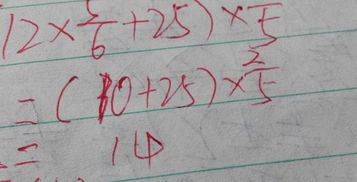 12×5/6+25)×/5
=(10+25)×2/5
= 14